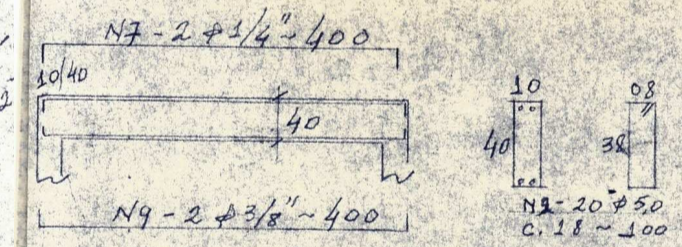 N7 - 2 ϕ 1/4" ~ 400
10/40
40
N9 - 2 ϕ 3/8" ~ 400
10
08
40
38
20 ϕ 5,0
C. 18 ~ 100